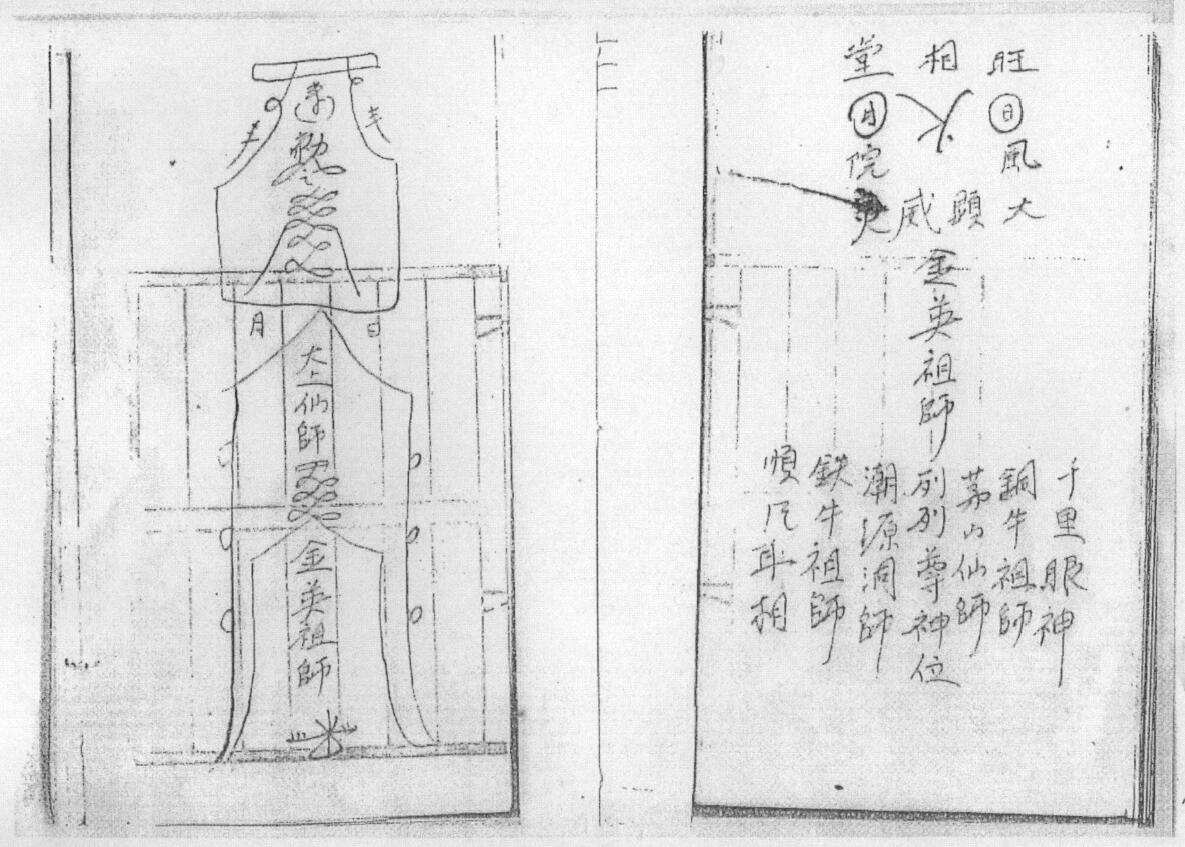 旺 相 堂
日 火 月
風 院
大 顯 威 英
金英祖師列列尊神位
千里眼神
銅牛祖師
茅山仙師
潮源洞師
鉄牛祖師
順風耳相
勅令
月 日
太上仙師
金英祖師